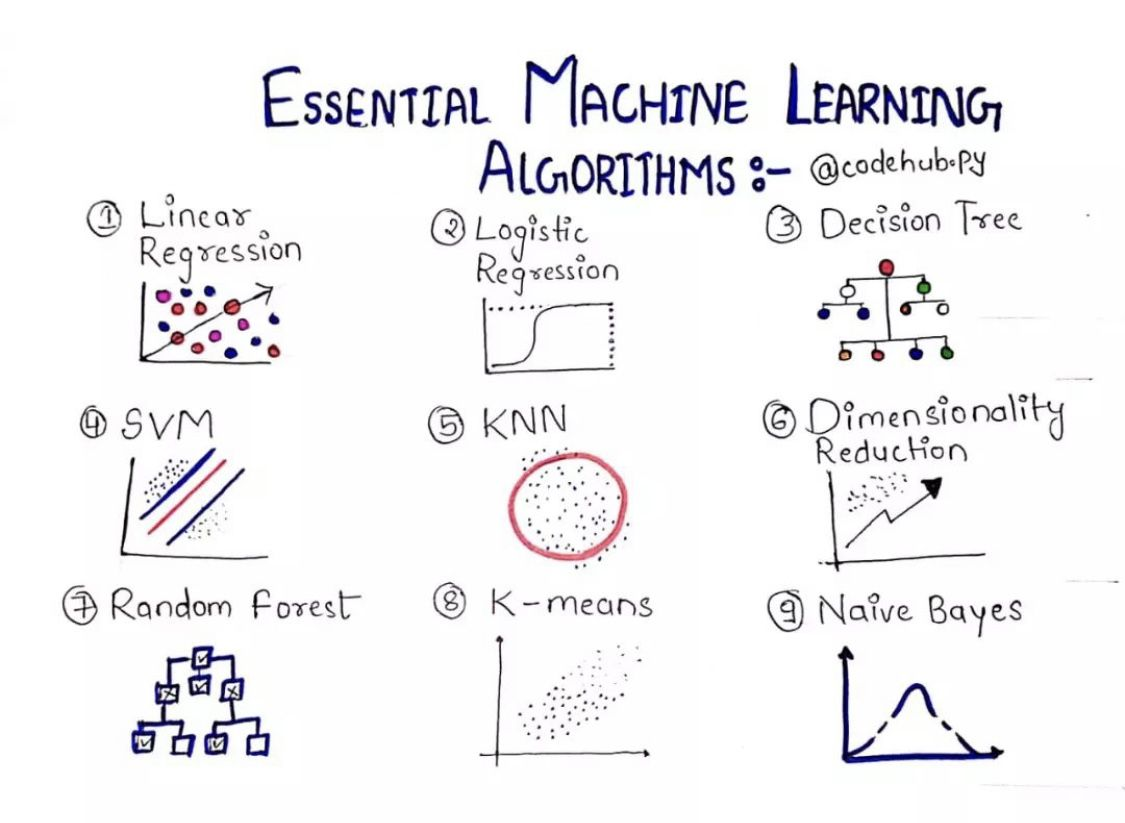 ESSENTIAL MACHINE LEARNING
ALGORITHMS :- @codehub.py
① Linear
Regression
② Logistic
Regression
③ Decision Tree
④ SVM
⑤ KNN
⑥ Dimensionality
Reduction
⑦ Random Forest
⑧ K-means
⑨ Naive Bayes